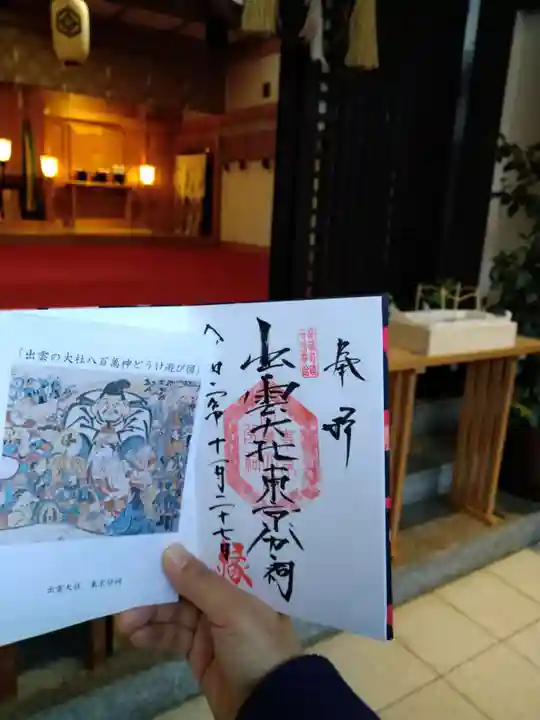 奉拝
出雲大社東京分祠
令和二年十一月二十七日
縁
「出雲の大社八百萬神どうけ遊び図」
出雲大社 東京分祠